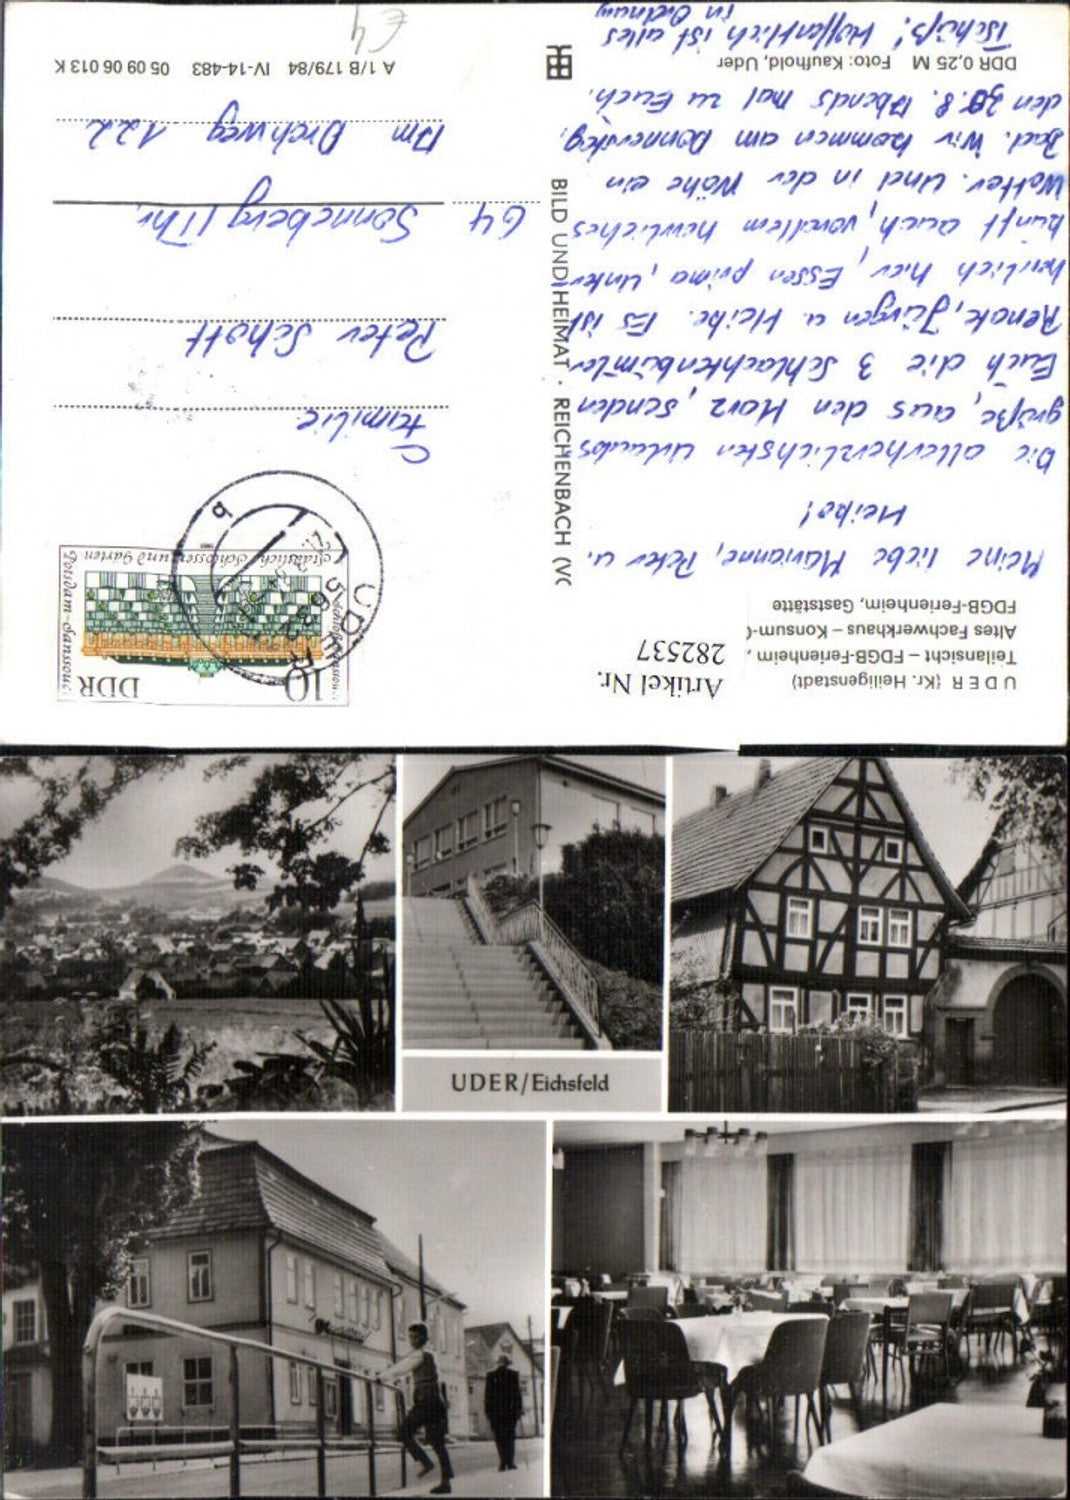 U D E R (Kr. Heiligenstadt)
Teilansicht – FDGB-Ferienheim,
Altes Fachwerkhaus – Konsum-
FDGB-Ferienheim, Gaststätte
Artikel Nr.
282537
Meine liebe Marianne, Peter u.
Heiko!
Die allerherzlichsten Urlaubs
grüße, aus den Harz, senden
Euch die 3 Schlachtenbümler
Renate, Jürgen u. Heike. Es ist
herrlich hier, Essen prima, Unter
kunft auch, vorallem herrliches
Wetter. Und in der Nähe ein
Bad. Wir kommen am Donnerstag,
den 30.8. Abends mal zu Euch.
Tschüß! Hoffentlich ist alles
in Ordnung
DDR 0,25 M Foto: Kaufhold, Uder
BILD UND HEIMAT · REICHENBACH (VO
10 DDR
Schloß Sanssouci
Potsdam-Sanssouci
Staatliche Schlösser und Gärten
UDER
5632
b
Familie
Peter Schott
64 Sonneberg / Thr.
Am Dichweg 122
A 1/B 179/84 IV-14-483 05 09 06 013 K
€4
UDER/Eichsfeld